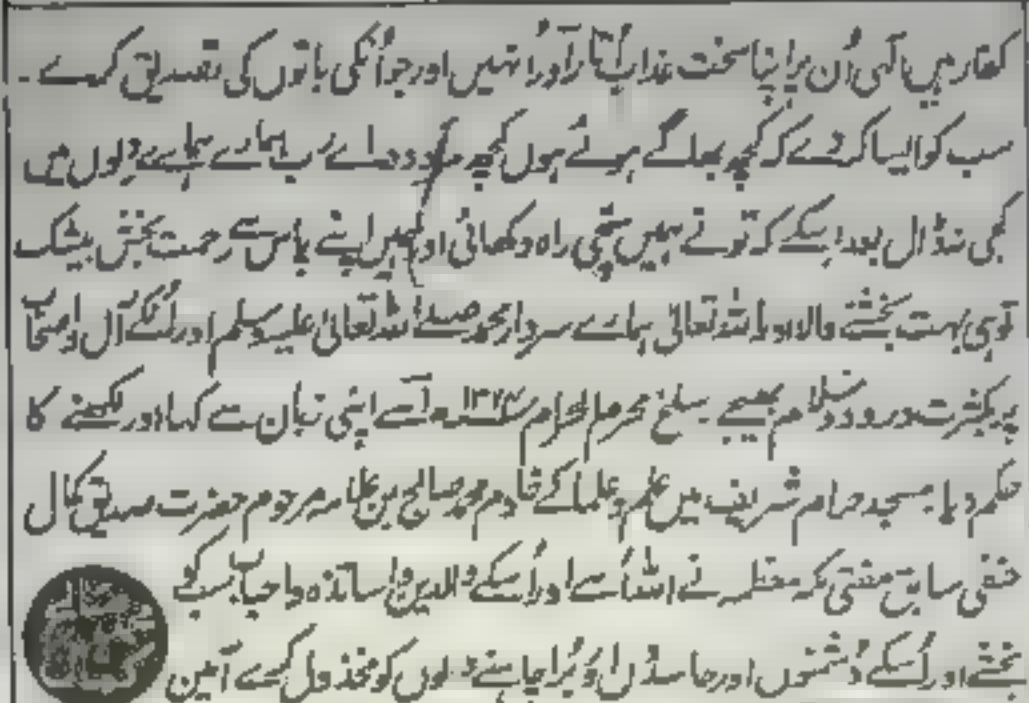 کفار میں الٰہی اُن پر اپنا سخت عذاب اُتار اور اُنہیں اور جو اُنکی باتوں کی تصدیق کرے۔
سب کو ایسا کردے کہ کچھ بھاگے ہوئے ہوں کچھ مردود اے رب ہمارے ہمارے دلوں میں
کجی نہ ڈال بعد اسکے کہ تونے ہمیں سچی راہ دکھائی اور ہمیں اپنے پاس سے رحمت بخش بیشک
توہی بہت بخشنے والا اور اللہ تعالیٰ ہمارے سردار محمد صلے اللہ تعالیٰ علیہ وسلم اور اُنکے آل و اصحاب
پر بکثرت درود و سلام بھیجے سلخ محرم الحرام ۱۳۲۴ھ اسے اپنی زبان سے کہا اور لکھنے کا
حکم دیا مسجد حرام شریف میں علم و علما کے خادم محمد صالح بن علامہ مرحوم حضرت صدیق کمال
حنفی سابق مفتی مکہ معظمہ نے اللہ اُسے اور اُسکے والدین و اساتذہ و احباب سب کو
بخشے اور اُسکے دُشمنوں اور حاسدوں اور بُرا چاہنے والوں کو مخذول کرے آمین